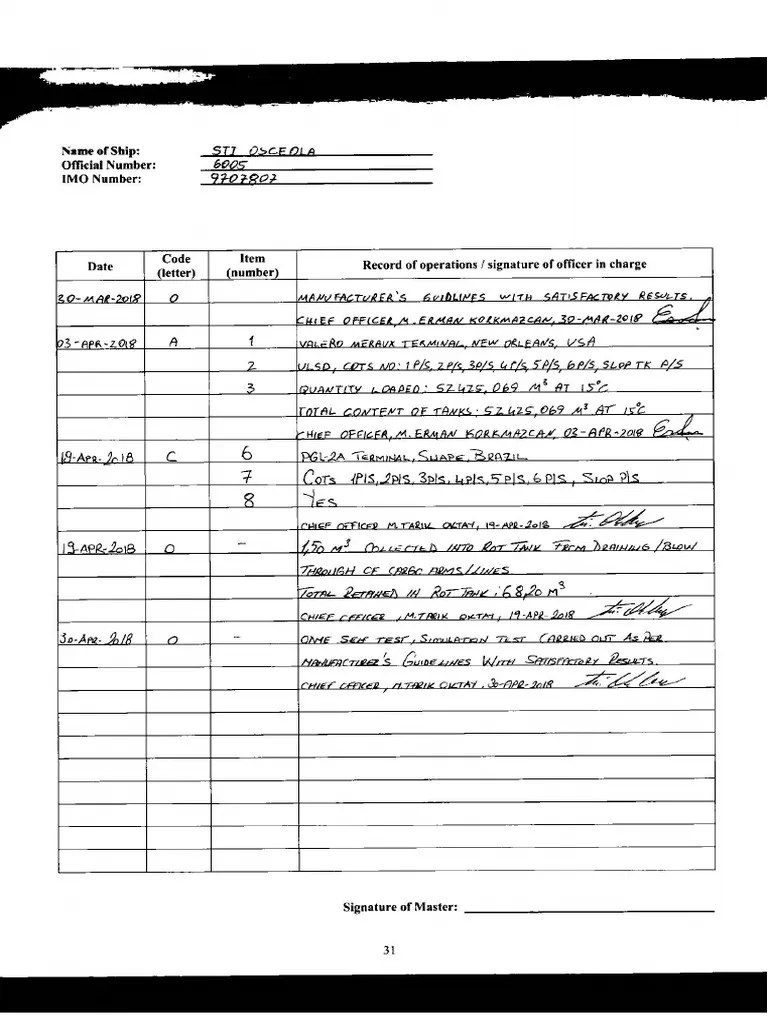 Name of Ship: STI OSCEOLA
Official Number: 6005
IMO Number: 9707807
Date Code (letter) Item (number) Record of operations / signature of officer in charge
30-MAR-2018 O MANUFACTURER'S GUIDLINES WITH SATISFACTORY RESULTS.
CHIEF OFFICER, M. ERMAN KORKMAZCAN, 30-MAR-2018
03-APR-2018 A 1 VALERO MERAUX TERMINAL, NEW ORLEANS, USA
2 ULSD, COTS NO: 1P/S, 2P/S, 3P/S, 4P/S, 5P/S, 6P/S, SLOP TK P/S
3 QUANTITY LOADED: 52425,069 M³ AT 15°C
TOTAL CONTENT OF TANKS: 52425,069 M³ AT 15°C
CHIEF OFFICER, M. ERMAN KORKMAZCAN, 03-APR-2018
19-APR-2018 C 6 PGL-2A TERMINAL, SUAPE, BRAZIL
7 COTS 1P/S, 2P/S, 3P/S, 4P/S, 5P/S, 6P/S, SLOP P/S
8 YES
CHIEF OFFICER M.TARIK OKTAY, 19-APR-2018
19-APR-2018 O - 1,50 M³ COLLECTED INTO ROT TANK FROM DRAINING / BLOW
THROUGH OF CARGO ARMS/LINES
TOTAL RETAINED IN ROT TANK : 68,20 M³
CHIEF OFFICER, M.TARIK OKTAY, 19-APR-2018
30-APR-2018 O - ODME SELF TEST, SIMULATION TEST CARRIED OUT AS PER
MANUFACTURER'S GUIDELINES WITH SATISFACTORY RESULTS.
CHIEF OFFICER, M.TARIK OKTAY, 30-APR-2018
Signature of Master:
31